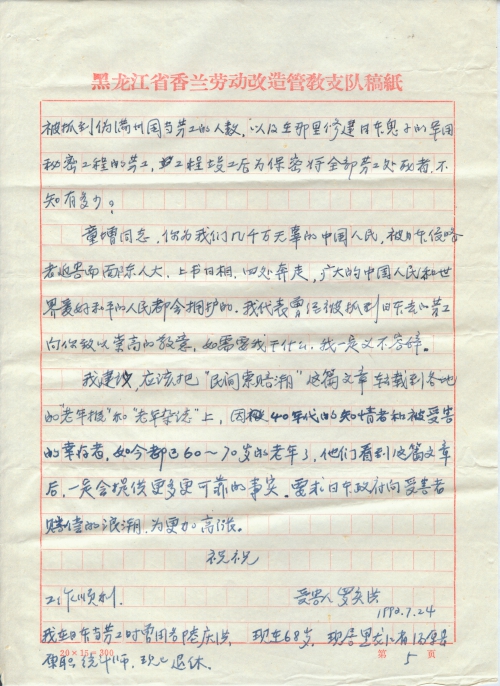 黑龙江省香兰劳动改造管教支队稿紙
被抓到伪满州国当劳工的人数，以及在那里修建日本鬼子的军用
秘密工程的劳工，工程竣工后为保密将全部劳工处死者，不
知有多少？
童曾同志，你为我们几千万无辜的中国人民，被日本侵略
者迫害而面陈人大、上书日相、四处奔走，广大的中国人民和世
界爱好和平的人民都会拥护的。我代表曾经被抓到日本去的劳工
向你致以崇高的敬意，如需要我干什么，我一定义不容辞。
我建议，应该把“民间索赔潮”这篇文章转载到各地
的“老年报”和“老年杂志”上，因40年代的知情者和被受害
的幸存者，如今都已60～70岁的老年了，他们看到这篇文章
后，一定会提供更多更可靠的事实。要求日本政府向受害者
赔偿的浪潮，为更加高涨。
祝祝
工作顺利.
受害人 罗
1992.7.24
我在日本当劳工时曾用名陈庆洪 现年68岁，现居黑龙江省汤原县
原职统计师，现已退休.
20×15=300
第 5 页